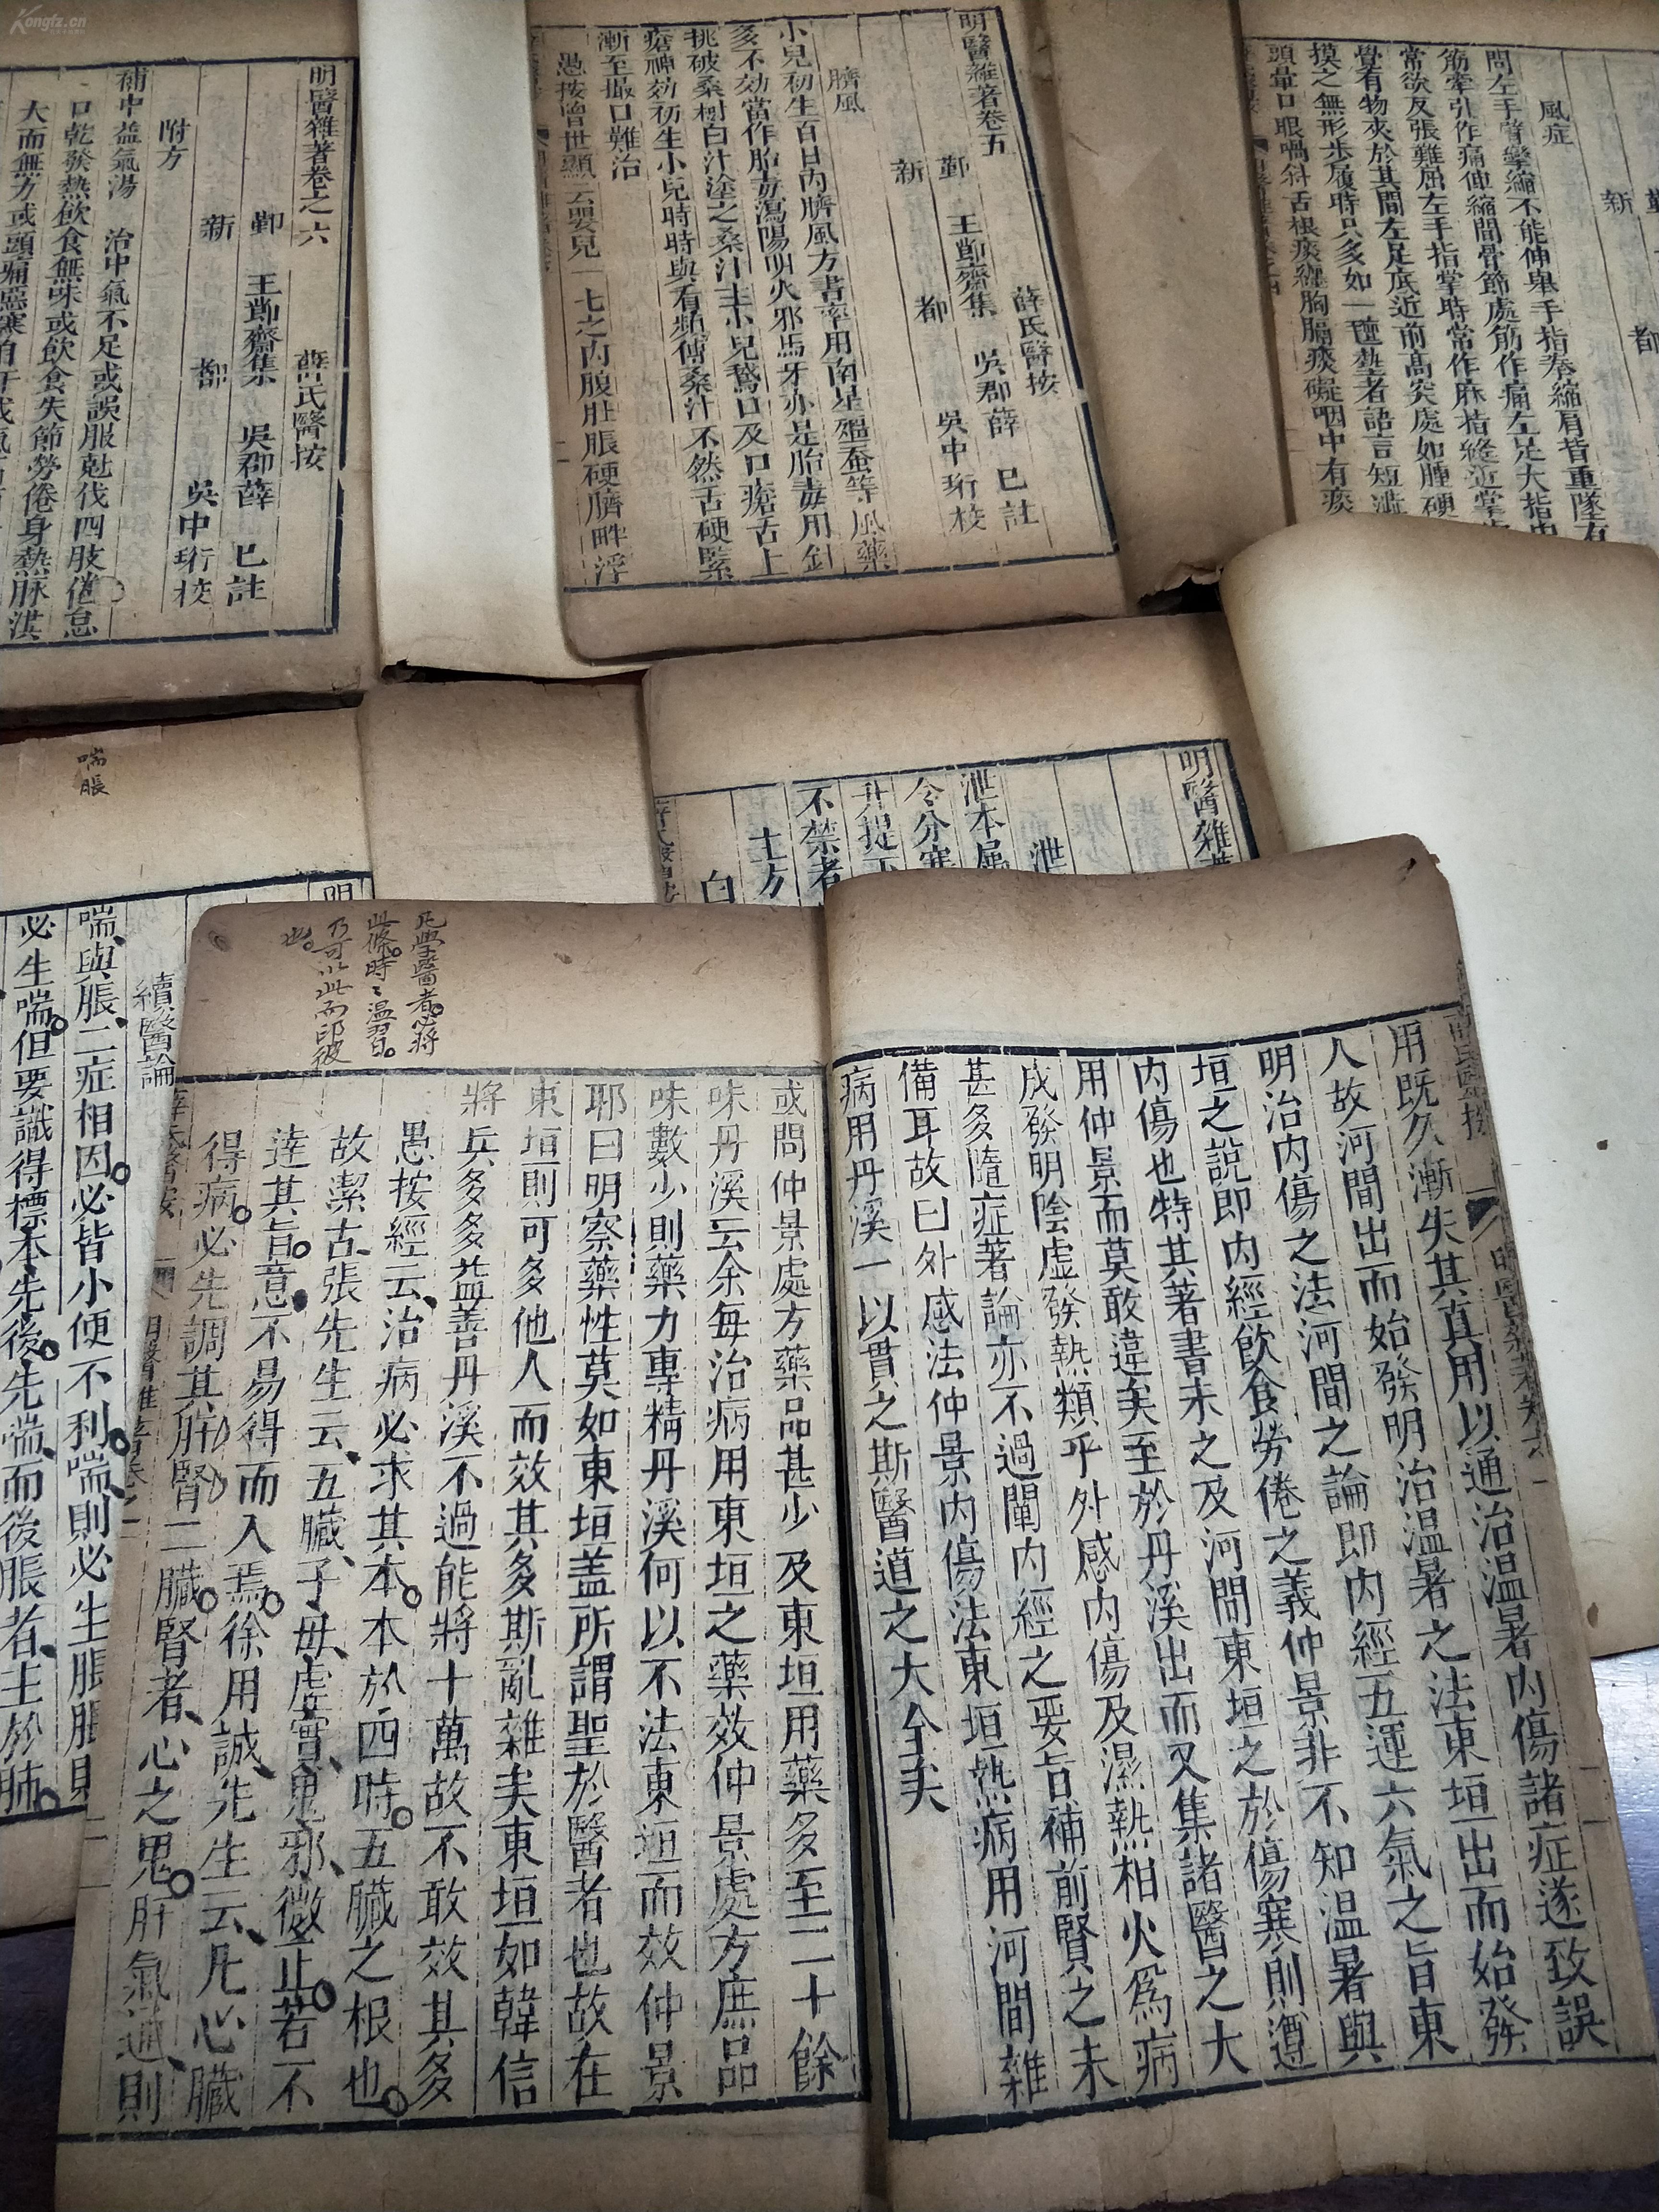 Kongfz.cn
明醫雜著卷之六
薛氏醫按
鄞 王節齋集 吳郡薛 已註
新 都 吳中珩校
附方
補中益氣湯 治中氣不足或誤服尅伐四肢倦怠
口乾發熱飲食無味或飲食失節勞倦身熱脉洪
大而無力或頭痛惡寒自汗
明醫雜著卷五
薛氏醫按
鄞 王節齋集 吳郡薛 已註
新 都 吳中珩校
臍風
小兒初生百日內臍風方書率用南星殭蚕等風藥
多不効當作胎毒瀉陽明火邪馬牙亦是胎毒用針
挑破桑樹白汁塗之桑汁主小兒鵞口及口瘡舌上
瘡神効初生小兒時時與看頻傅桑汁不然舌硬緊
漸至撮口難治
愚按曾世顯云嬰兒一七之內腹肚脹硬臍畔浮
鄞
新 都
風症
問左手臂攣縮不能伸舉手指拳縮肩背重墜有
筋牽引作痛伸縮間骨節處筋作痛左足大指中
常欲反張難屈左手指掌時常作麻指縫近掌
覺有物夾於其間左足底近前高突處如腫硬
摸之無形步履時只多如一𤴡墊者語言短澁
頭暈口眼喎斜舌根痰纏胸膈痰礙咽中有痰
喘脹
續醫論
喘與脹二症相因必皆小便不利喘則必生脹脹則
必生喘但要識得標本先後先喘而後脹者主於肺
明醫雜
泄
泄本屬
令分寒
升提下
不禁者
主方
白
凡學醫者必將
此條時時溫習
乃可以此而印彼
也
用既久漸失其真用以通治溫暑內傷諸症遂致誤
人故河間出而始發明治溫暑之法東垣出而始發
明治內傷之法河間之論即內經五運六氣之旨東
垣之說即內經飲食勞倦之義仲景非不知溫暑與
內傷也特其著書未之及河間東垣之於傷寒則遵
用仲景而莫敢違矣至於丹溪出而又集諸醫之大
成發明陰虛發熱類乎外感內傷及濕熱相火為病
甚多隨症著論亦不過闡內經之要旨補前賢之未
備耳故曰外感法仲景內傷法東垣熱病用河間雜
病用丹溪一以貫之斯醫道之大全矣
或問仲景處方藥品甚少及東垣用藥多至二十餘
味丹溪云余每治病用東垣之藥效仲景處方庶品
味數少則藥力專精丹溪何以不法東垣而效仲景
耶曰明察藥性莫如東垣盖所謂聖於醫者也故在
東垣則可多他人而效其多斯亂雜矣東垣如韓信
將兵多多益善丹溪不過能將十萬故不敢效其多
愚按經云治病必求其本本於四時五臟之根也
故潔古張先生云五臟子母虛實鬼邪微正若不
達其旨意不易得而入焉徐用誠先生云凡心臟
得病必先調其肝腎二臟腎者心之鬼肝氣通則